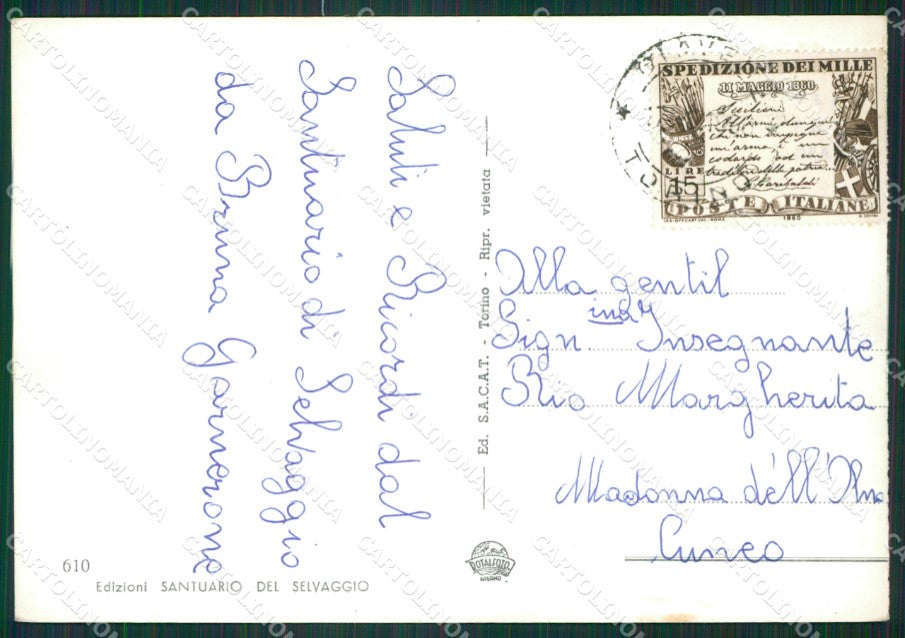 Saluti e Ricordi dal
Santuario di Selvaggio
da Bruna Garnerone
610
Edizioni SANTUARIO DEL SELVAGGIO
Ed. S.A.C.A.T. - Torino - Ripr. vietata
ROTALFOTO
MILANO
TORINO
SPEDIZIONE DEI MILLE
11 MAGGIO 1860
Siciliani
All'armi dunque
chi non impugna
un'arma è un
codardo od un
traditore della patria
G Garibaldi
LIRE
15
POSTE ITALIANE
1960
Alla gentil
Sign.ina Insegnante
Rio Margherita
Madonna dell'Olmo
Cuneo
CARTOLINOMANIA